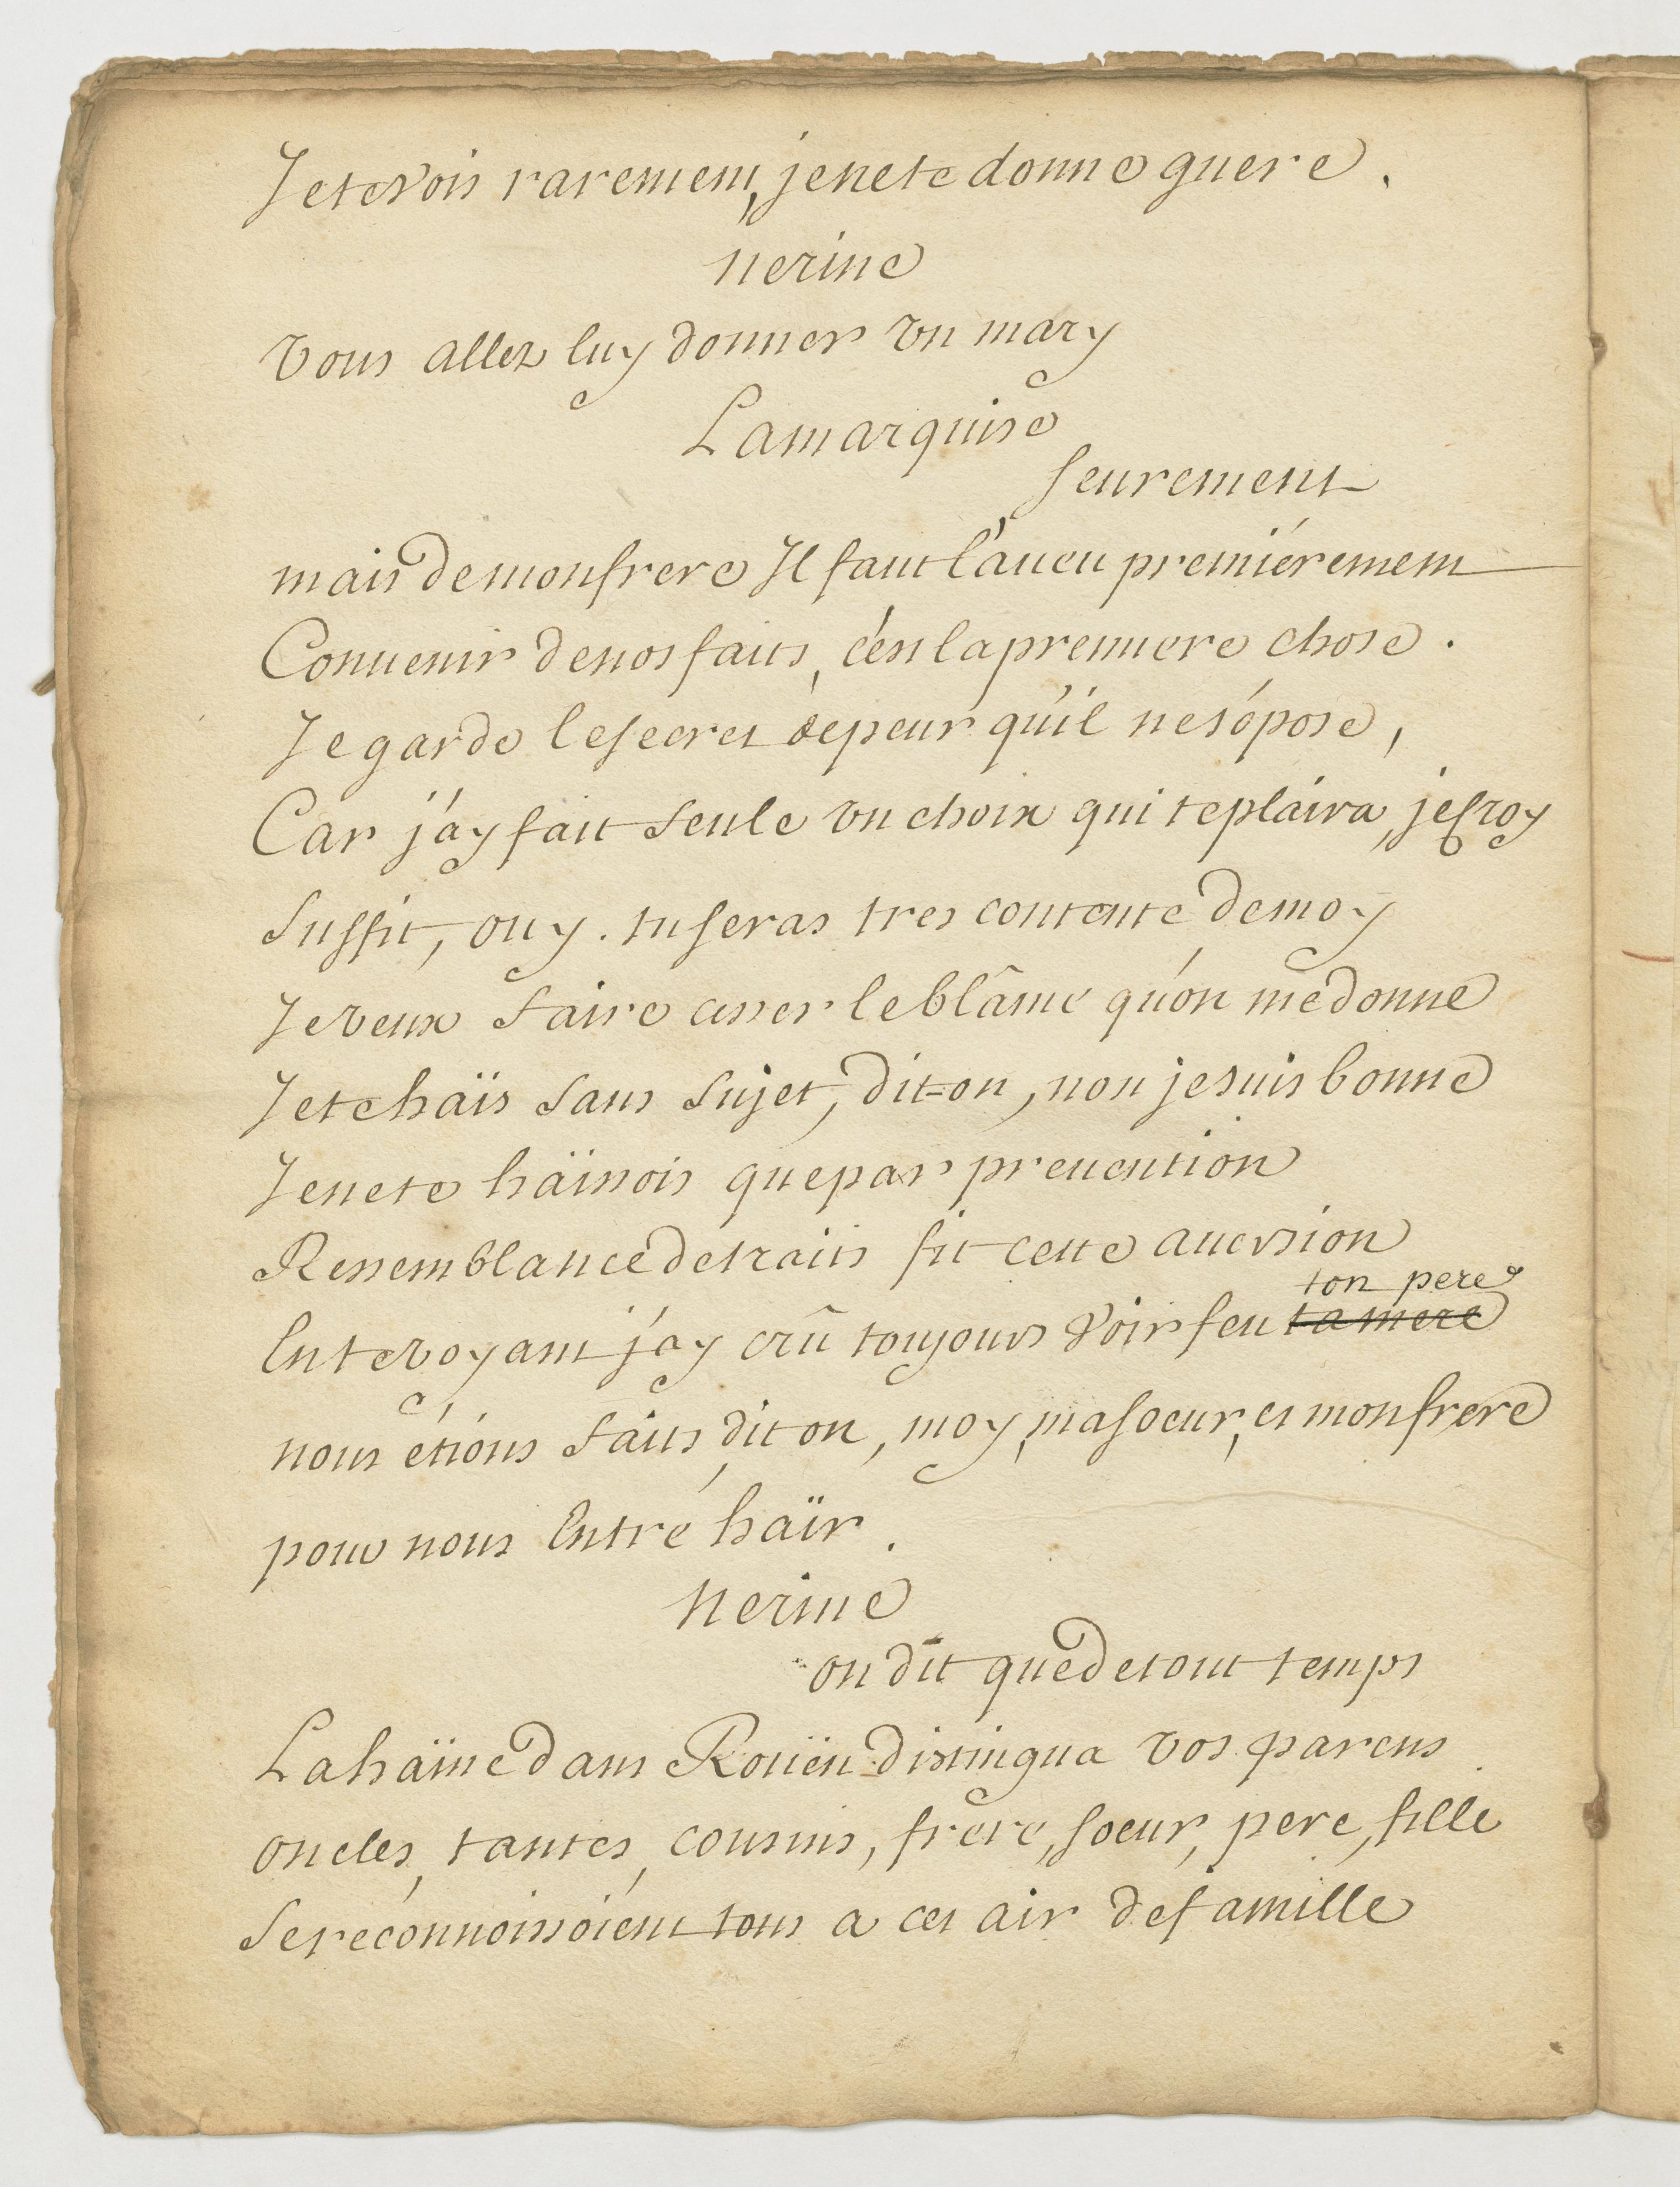 Je te vois rarement, je ne te donne guere.
nerine
vous allez luy donner vn mary
La marquise
seurement
mais de mon frere Il faut l'aueu premiérement
Conuenir de nos faits, c'est la premiere chose.
Je garde le secret de peur qu'il ne s'ópose,
Car j'ay fait seule vn choix qui te plaira, je croy
suffit, ouy. tu seras tres contente de moy
Je veux faire cesser le blâme qu'on me donne
Je te häis sans sujet, dit=on, non je suis bonne
Je ne te häissois que par preuention
Ressemblance de traits fit cette auersion
ton pere
En te voyant j'ay crû toujours voir feu ta mere
nous étions faits, dit on, moy, ma soeur, et mon frere
pour nous Entre häir.
nerine
on dit que de tout temps
La häine dans Roüen distingua vos parens
oncles, tantes, cousins, frere, soeur, pere, fille
se reconnoissoient tous a cet air de famille